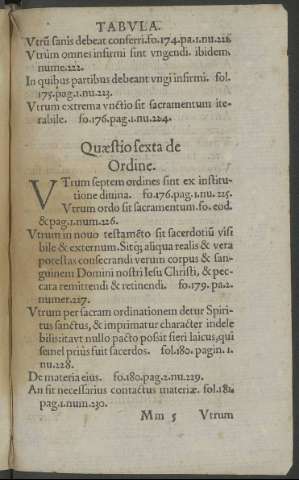 TABVLA.
Vtrũ sanis debeat conferri. fo.174.pa.1.nu.221.
Vtrũm omnes infirmi sint vngendi. ibidem.
nume.222.
In quibus partibus debeant vngi infirmi. fol.
175.pag.1.nu.223.
Vtrum extrema vnctio sit sacramentum ite-
rabile. fo.176.pag.1.nu.224.
Quæstio sexta de
Ordine.
VTrum septem ordines sint ex institu-
tione diuina. fo.176.pag.1.nu. 225.
Vtrum ordo sit sacramentum. fo. eod.
&pag.1.num.226.
Vtrum in nouo testamẽto sit sacerdotiũ visi
bile & externum. Sitq; aliqua realis & vera
potestas consecrandi verum corpus & san-
guinem Domini nostri Iesu Christi, & pec-
cata remittendi & retinendi. fo.179. pa.2.
numer.227.
Vtrum per sacram ordinationem detur Spiri-
tus sanctus, & imprimatur character indele
bilis: itavt nullo pacto possit fieri laicus, qui
semel priùs fuit sacerdos. fol.180. pagin. 1.
nu.228.
De materia eius. fo.180.pag.2.nu.229.
An sit necessarius contactus materiæ. fol.182.
pag.1.num.230.
Mm 5 Vtrum